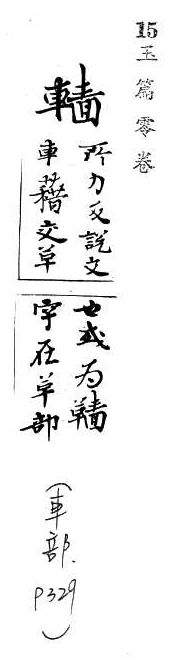 15玉篇零卷
轖
所力反說文
車藉交革
也或为
字在革部
(車部.P329)